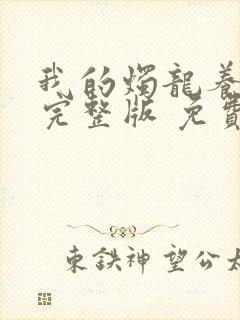 我的烛龍养
完整版 免費
東鉄神望公太